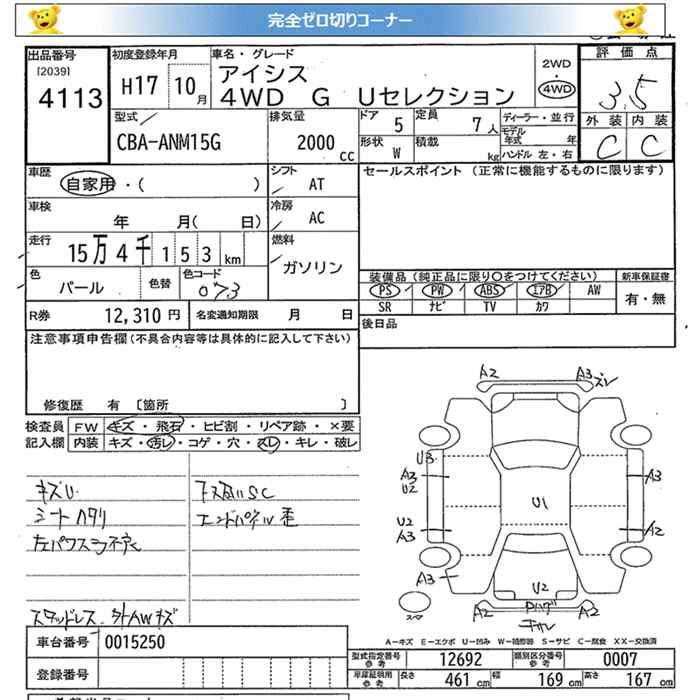 完全ゼロ切りコーナー
出品番号
[2039]
4113
初度登録年月
H17 10月
車名・グレード
アイシス
4WD G Uセレクション
2WD
・
4WD
評価点
3.5
外装 内装
C C
型式
CBA-ANM15G
排気量
2000 cc
ドア 5
定員 7人
形状 W
積載 kg
ディーラー・並行
モデル年式 年
ハンドル 左・右
車歴
自家用・( )
シフト
AT
セールスポイント (正常に機能するものに限ります)
車検
年 月( 日)
冷房
AC
走行
15万4千153km
燃料
ガソリン
色
パール
色替
色コード
073
装備品 (純正品に限り○をつけてください)
PS PW ABS エアB AW
SR ナビ TV カワ
新車保証書
有・無
R券 12,310円
名変通知期限 月 日
後日品
注意事項申告欄(不具合内容等は具体的に記入して下さい)
修復歴 有 〔箇所 〕
検査員記入欄
FW キズ・飛石・ヒビ割・リペア跡・×要
内装 キズ・汚レ・コゲ・穴・スレ・キレ・破レ
キズU
シートヘタリ
下廻りSC
エンドパネル歪
スタッドレス 外AWキズ
A2 A3ズレ
U3
A3
U2
A3
U1
U2
A3
A2
A3
U2
A2 A2
スマ
A-キズ E-エクボ U-凹み W-補修跡 S-サビ C-腐食 XX-交換済
車台番号 0015250
登録番号
型式指定番号 参考 12692
類別区分番号 参考 0007
車庫証明用 参考 長さ 461cm 幅 169cm 高さ 167cm